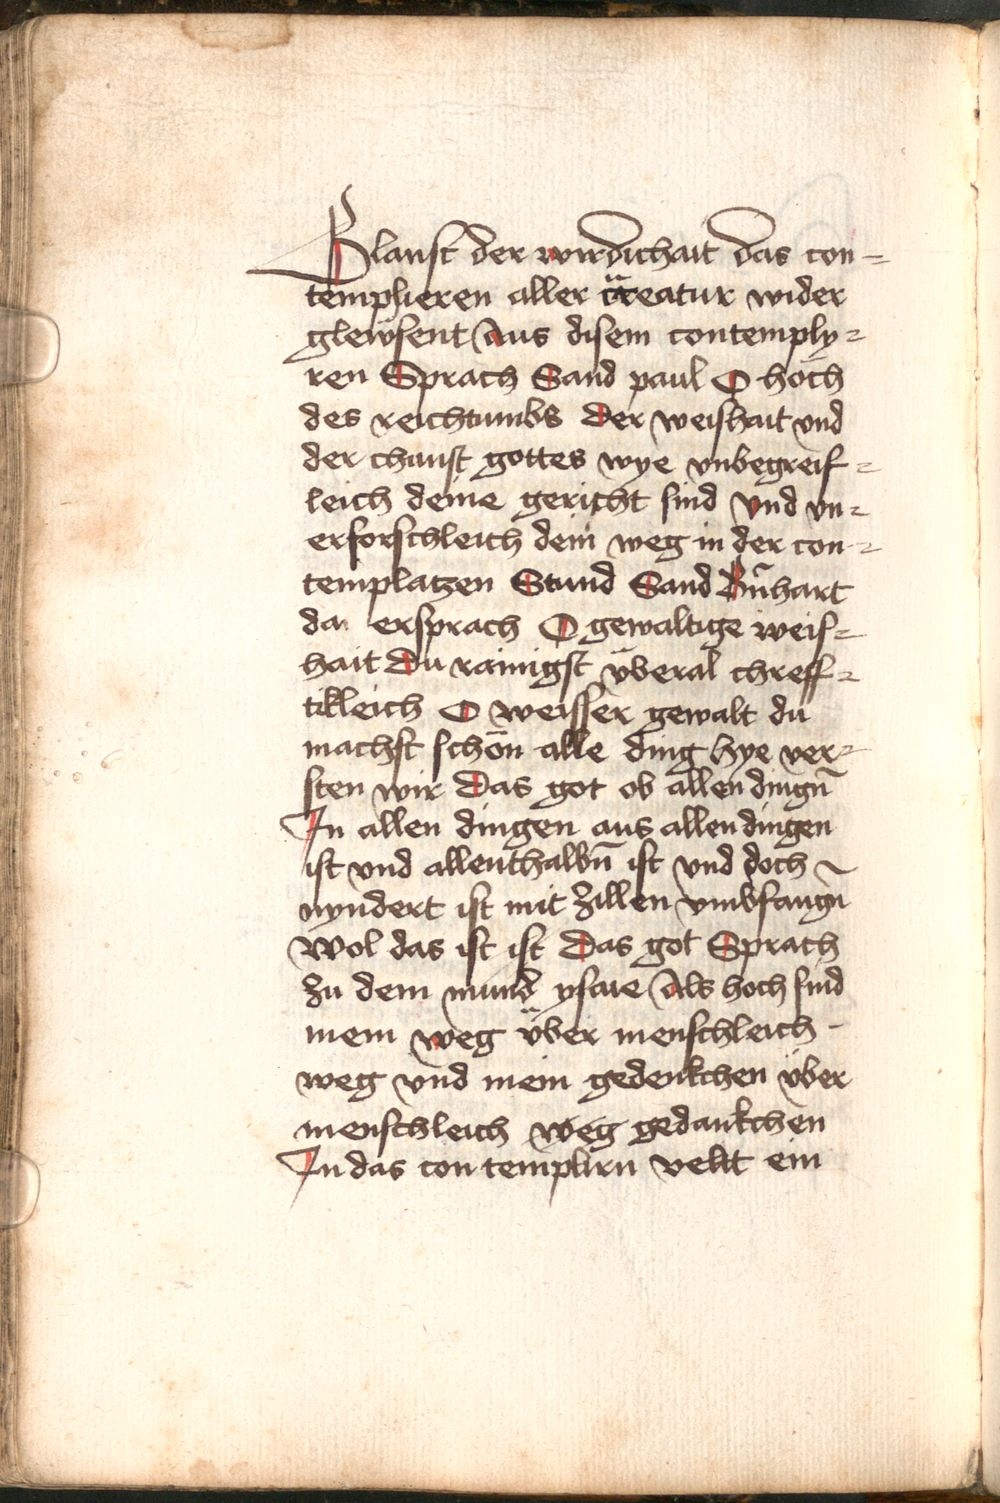 Glanst der wirdichait das con-
templieren aller creatur wider
glewsent Aus disem contemply-
ren Sprach Sand paul O hoch
des reichtumbs Der weishait vnd
der chunst gottes wye vnbegreif-
leich deine gericht sind Vnd vn-
erforschleich dein weg in der con-
templatzen Stund Sand Bn̄hart
da ersprach O gewaltige weis-
hait Du rainigst v̈beral chreff-
tikleich O weisser gewalt du
machst schön alle ding hye ver-
sten wir Das got ob allen dingn̄
In allen dingen aus allen dingen
ist vnd allenthalbn̄ ist vnd doch
nyndert ist mit zillen vmbfangn̄
Wol das ist ist Das got Sprach
zu dem mund ysaie Als hoch sind
mein weg v̈ber menschleich
weg vnd mein gedenkchen v̈ber
menschleich weg gedankchen
In das contemplirn velt ein